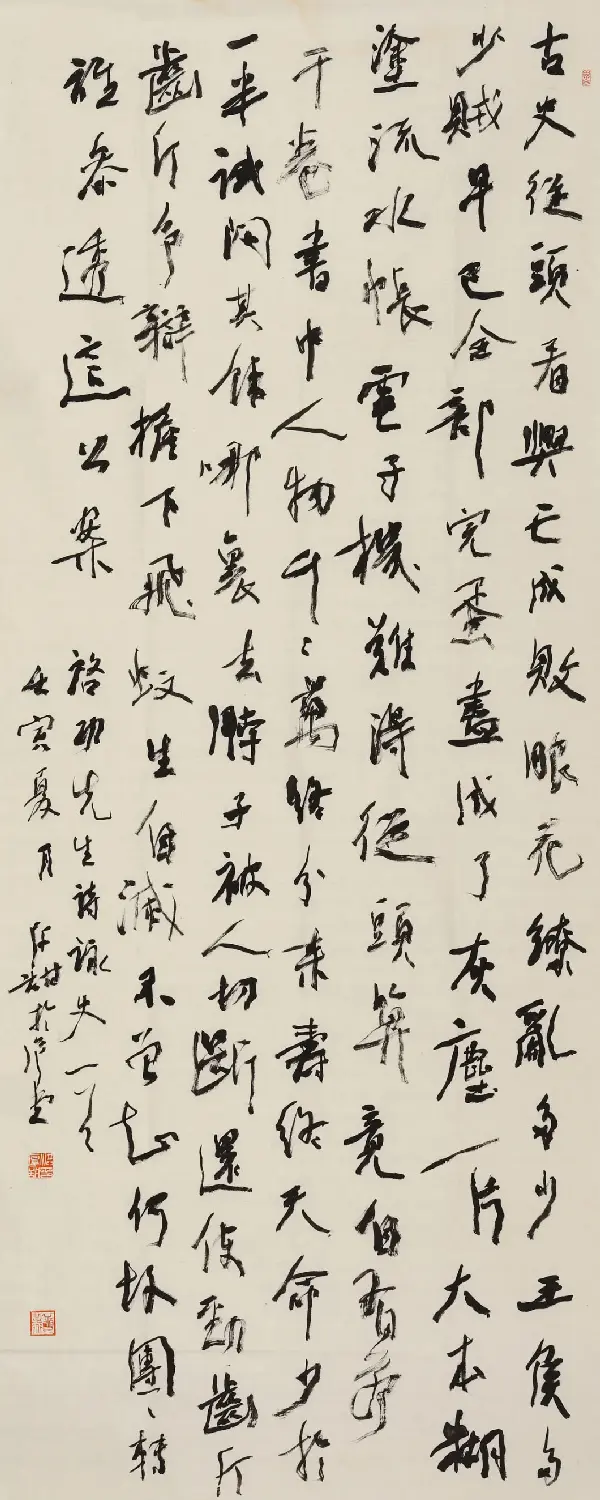 古史從頭看興亡成敗眼花繚亂多少王侯多
少賊早已全部完蛋盡成了灰塵一片大本糊
塗流水帳電子機難得從頭算竟自有若
干卷書中人物千〻萬分來壽終天命少於
一半試問其餘哪裏去脖子被人切斷還使勁齗
齗爭辯檐下飛蚊生自滅不曾知何故團〻轉
誰參透這公案
啓功先生詩詠史一首
壬寅夏月